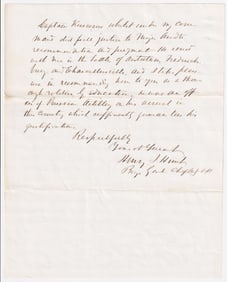 Captain Kusserow whilst under my com-
mand did full justice to Major Arndts
recommendation and judgment. He served
with me in the battle of Antietam, Fredericks
burg and Chancellorsville, and I take pleas
ure in recommending him to you as a thor
ough soldier by education, he was an off
icer of Prussian Artillery
this country which sufficiently guarantees his
qualifications.
Respectfully
Your obt Servant
Henry J Hunt
Brig Genl Chf Arty AP